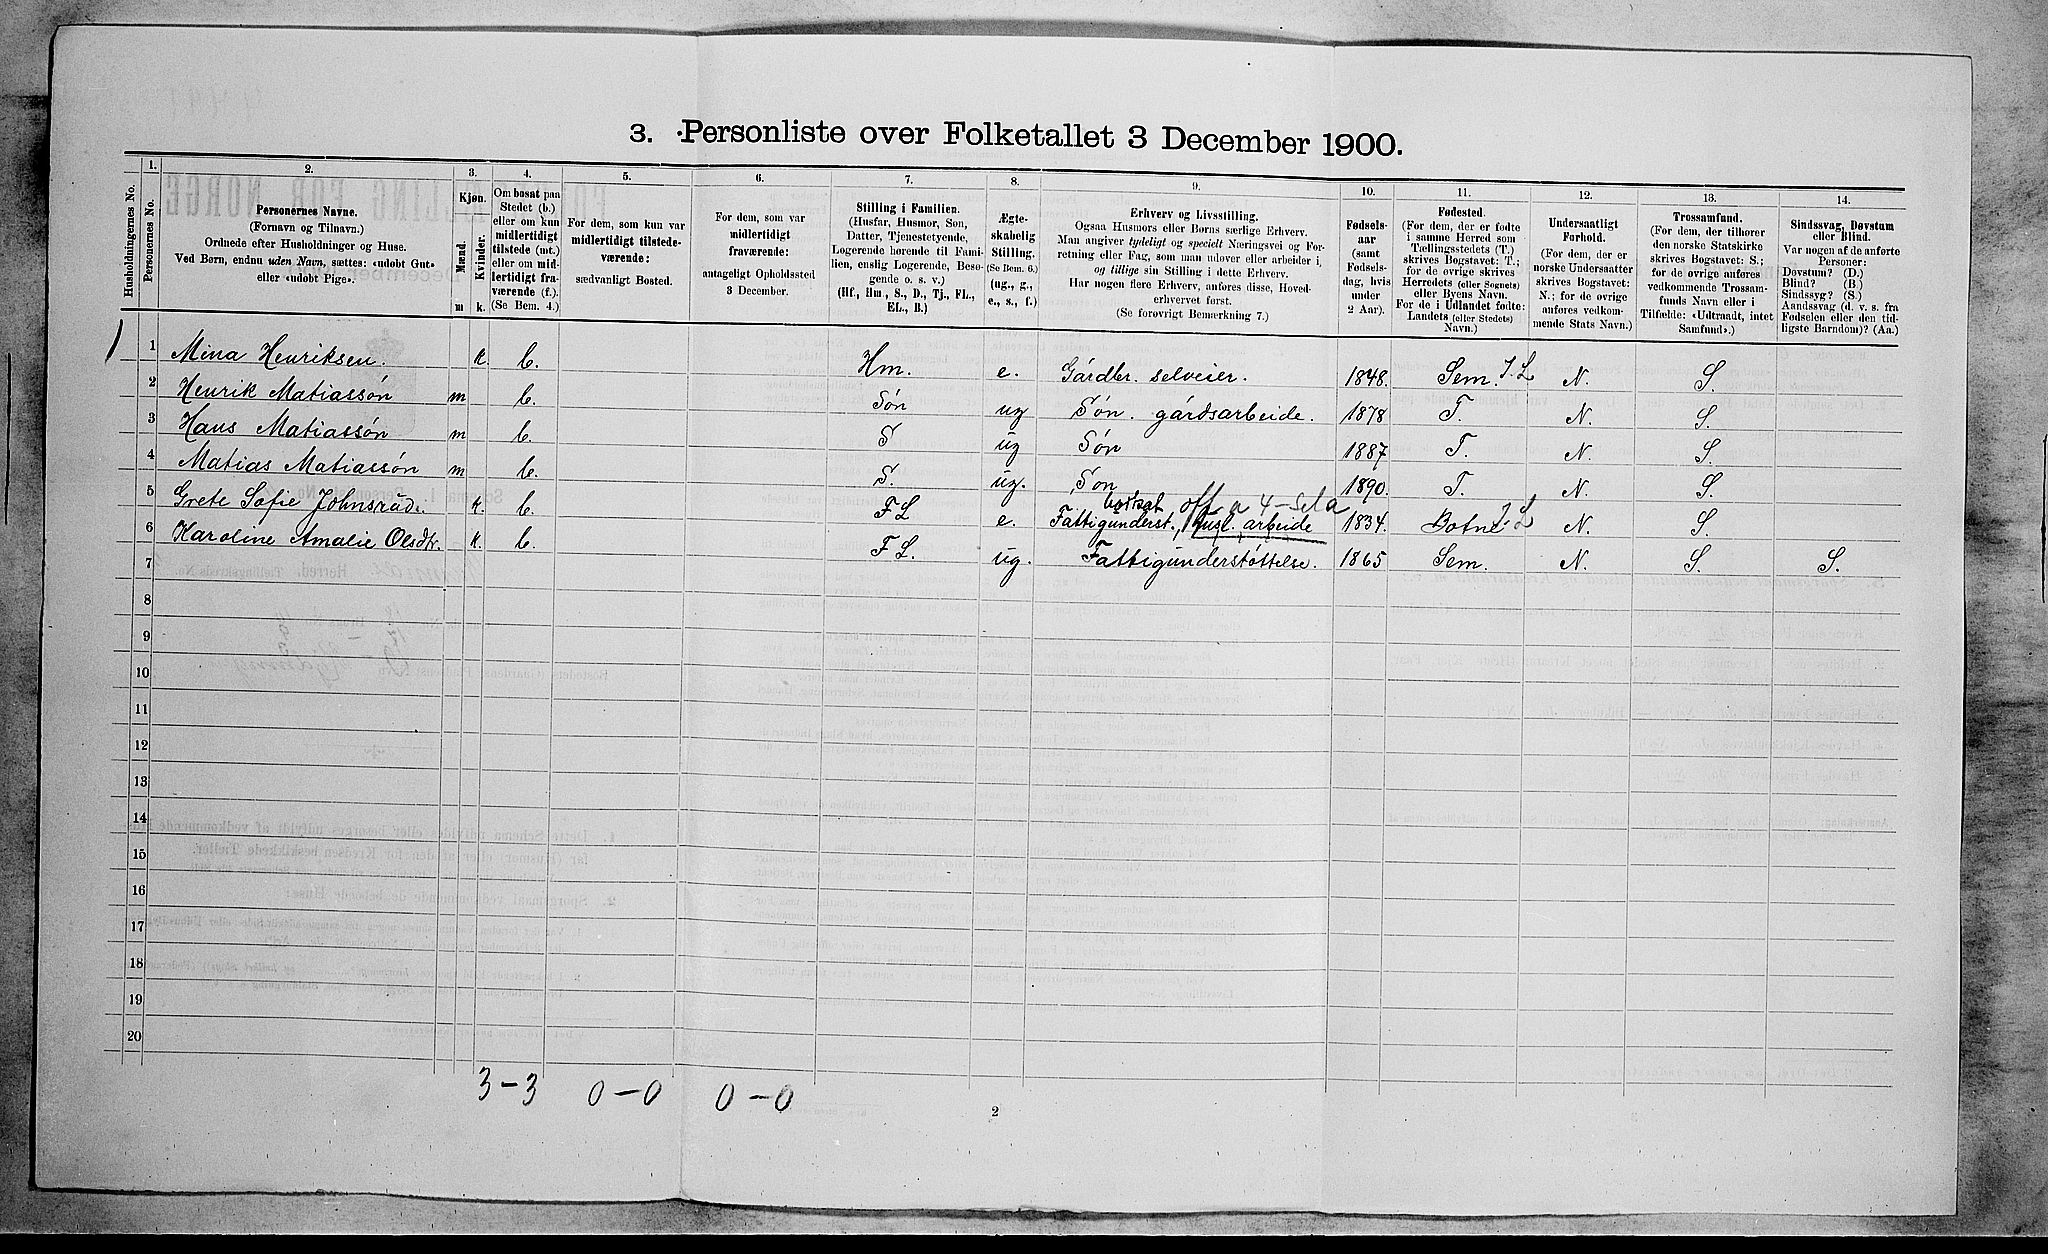 3. Personliste over Folketallet 3 December 1900.
Husholdningernes No.
1. Personernes No.
2. Personernes Navne.
(Fornavn og Tilnavn.)
Ordnede efter Husholdninger og Huse.
Ved Børn, endnu uden Navn, sættes: «udøbt Gut»
eller «udøbt Pige».
3. Kjøn.
Mænd. Kvinder.
m k.
4. Om bosat paa
Stedet (b.)
eller om kun
midlertidigt
tilstede (mt.)
eller om mid-
lertidigt fra-
værende (f.).
(Se Bem. 4.)
5. For dem, som kun var
midlertidigt tilstede-
værende:
sædvanligt Bosted.
6. For dem, som var
midlertidigt
fraværende:
antageligt Opholdssted
3 December.
7. Stilling i Familien.
(Husfar, Husmor, Søn,
Datter, Tjenestetyende,
Logerende hørende til Fami-
lien, enslig Logerende, Besø-
gende o. s. v.)
(Hf., Hm., S., D., Tj., FL.,
EL., B.)
8. Ægte-
skabelig
Stilling.
(Se Bem. 6.)
(ug., g.,
e., s., f.)
9. Erhverv og Livsstilling.
Ogsaa Husmors eller Børns særlige Erhverv.
Man angiver tydeligt og specielt Næringsvei og For-
retning eller Fag, som man udøver eller arbeider i,
og tillige sin Stilling i dette Erhverv.
Har nogen flere Erhverv, anføres disse, Hoved-
erhvervet først.
(Se forøvrigt Bemærkning 7.)
10. Fødsels-
aar
(samt
Fødsels-
dag, hvis
under
2 Aar).
11. Fødested.
(For dem, der er fødte
i samme Herred som
Tællingsstedets (T.)
skrives Bogstavet: T.;
for de øvrige skrives
Herredets (eller Sognets)
eller Byens Navn.
For de i Udlandet fødte:
Landets (eller Stedets)
Navn.)
12. Undersaatligt
Forhold.
(For dem, der er
norske Undersaatter
skrives Bogstavet:
N.; for de øvrige
anføres vedkom-
mende Stats Navn.)
13. Trossamfund.
(For dem, der tilhører
den norske Statskirke
skrives Bogstavet: S.;
for de øvrige anføres
vedkommende Trossam-
funds Navn eller i
Tilfælde: «Udtraadt, intet
Samfund».)
14. Sindssvag, Døvstum
eller Blind.
Var nogen af de anførte
Personer:
Døvstum? (D.)
Blind? (B.)
Sindssyg? (S.)
Aandssvag (d. v. s. fra
Fødselen eller den tid-
ligste Barndom)? (Aa.)
1 Mina Henriksen. k. b. Hm. e. Gårdbr. selveier. 1848. Sem. J. L N. S.
2 Henrik Matiassøn m b. Søn ug Søn. gårdsarbeide. 1878 T. N. S.
3 Hans Matiassøn m b. S ug Søn 1887 T. N. S.
4 Matias Matiassøn m b. S. ug. Søn 1890. T. N. S.
5 Grete Sofie Johnsrud. k. b. F L e. Fattigunderst., husl. arbeide 1834. Botne J. L N. S.
6 Karoline Amalie Olsdtr. k. b. F L. ug. Fattigunderstøttelse. 1865 Sem. N. S. S.
7
8
9
10
11
12
13
14
15
16
17
18
19
20
3 – 3 0 – 0 0 – 0
2